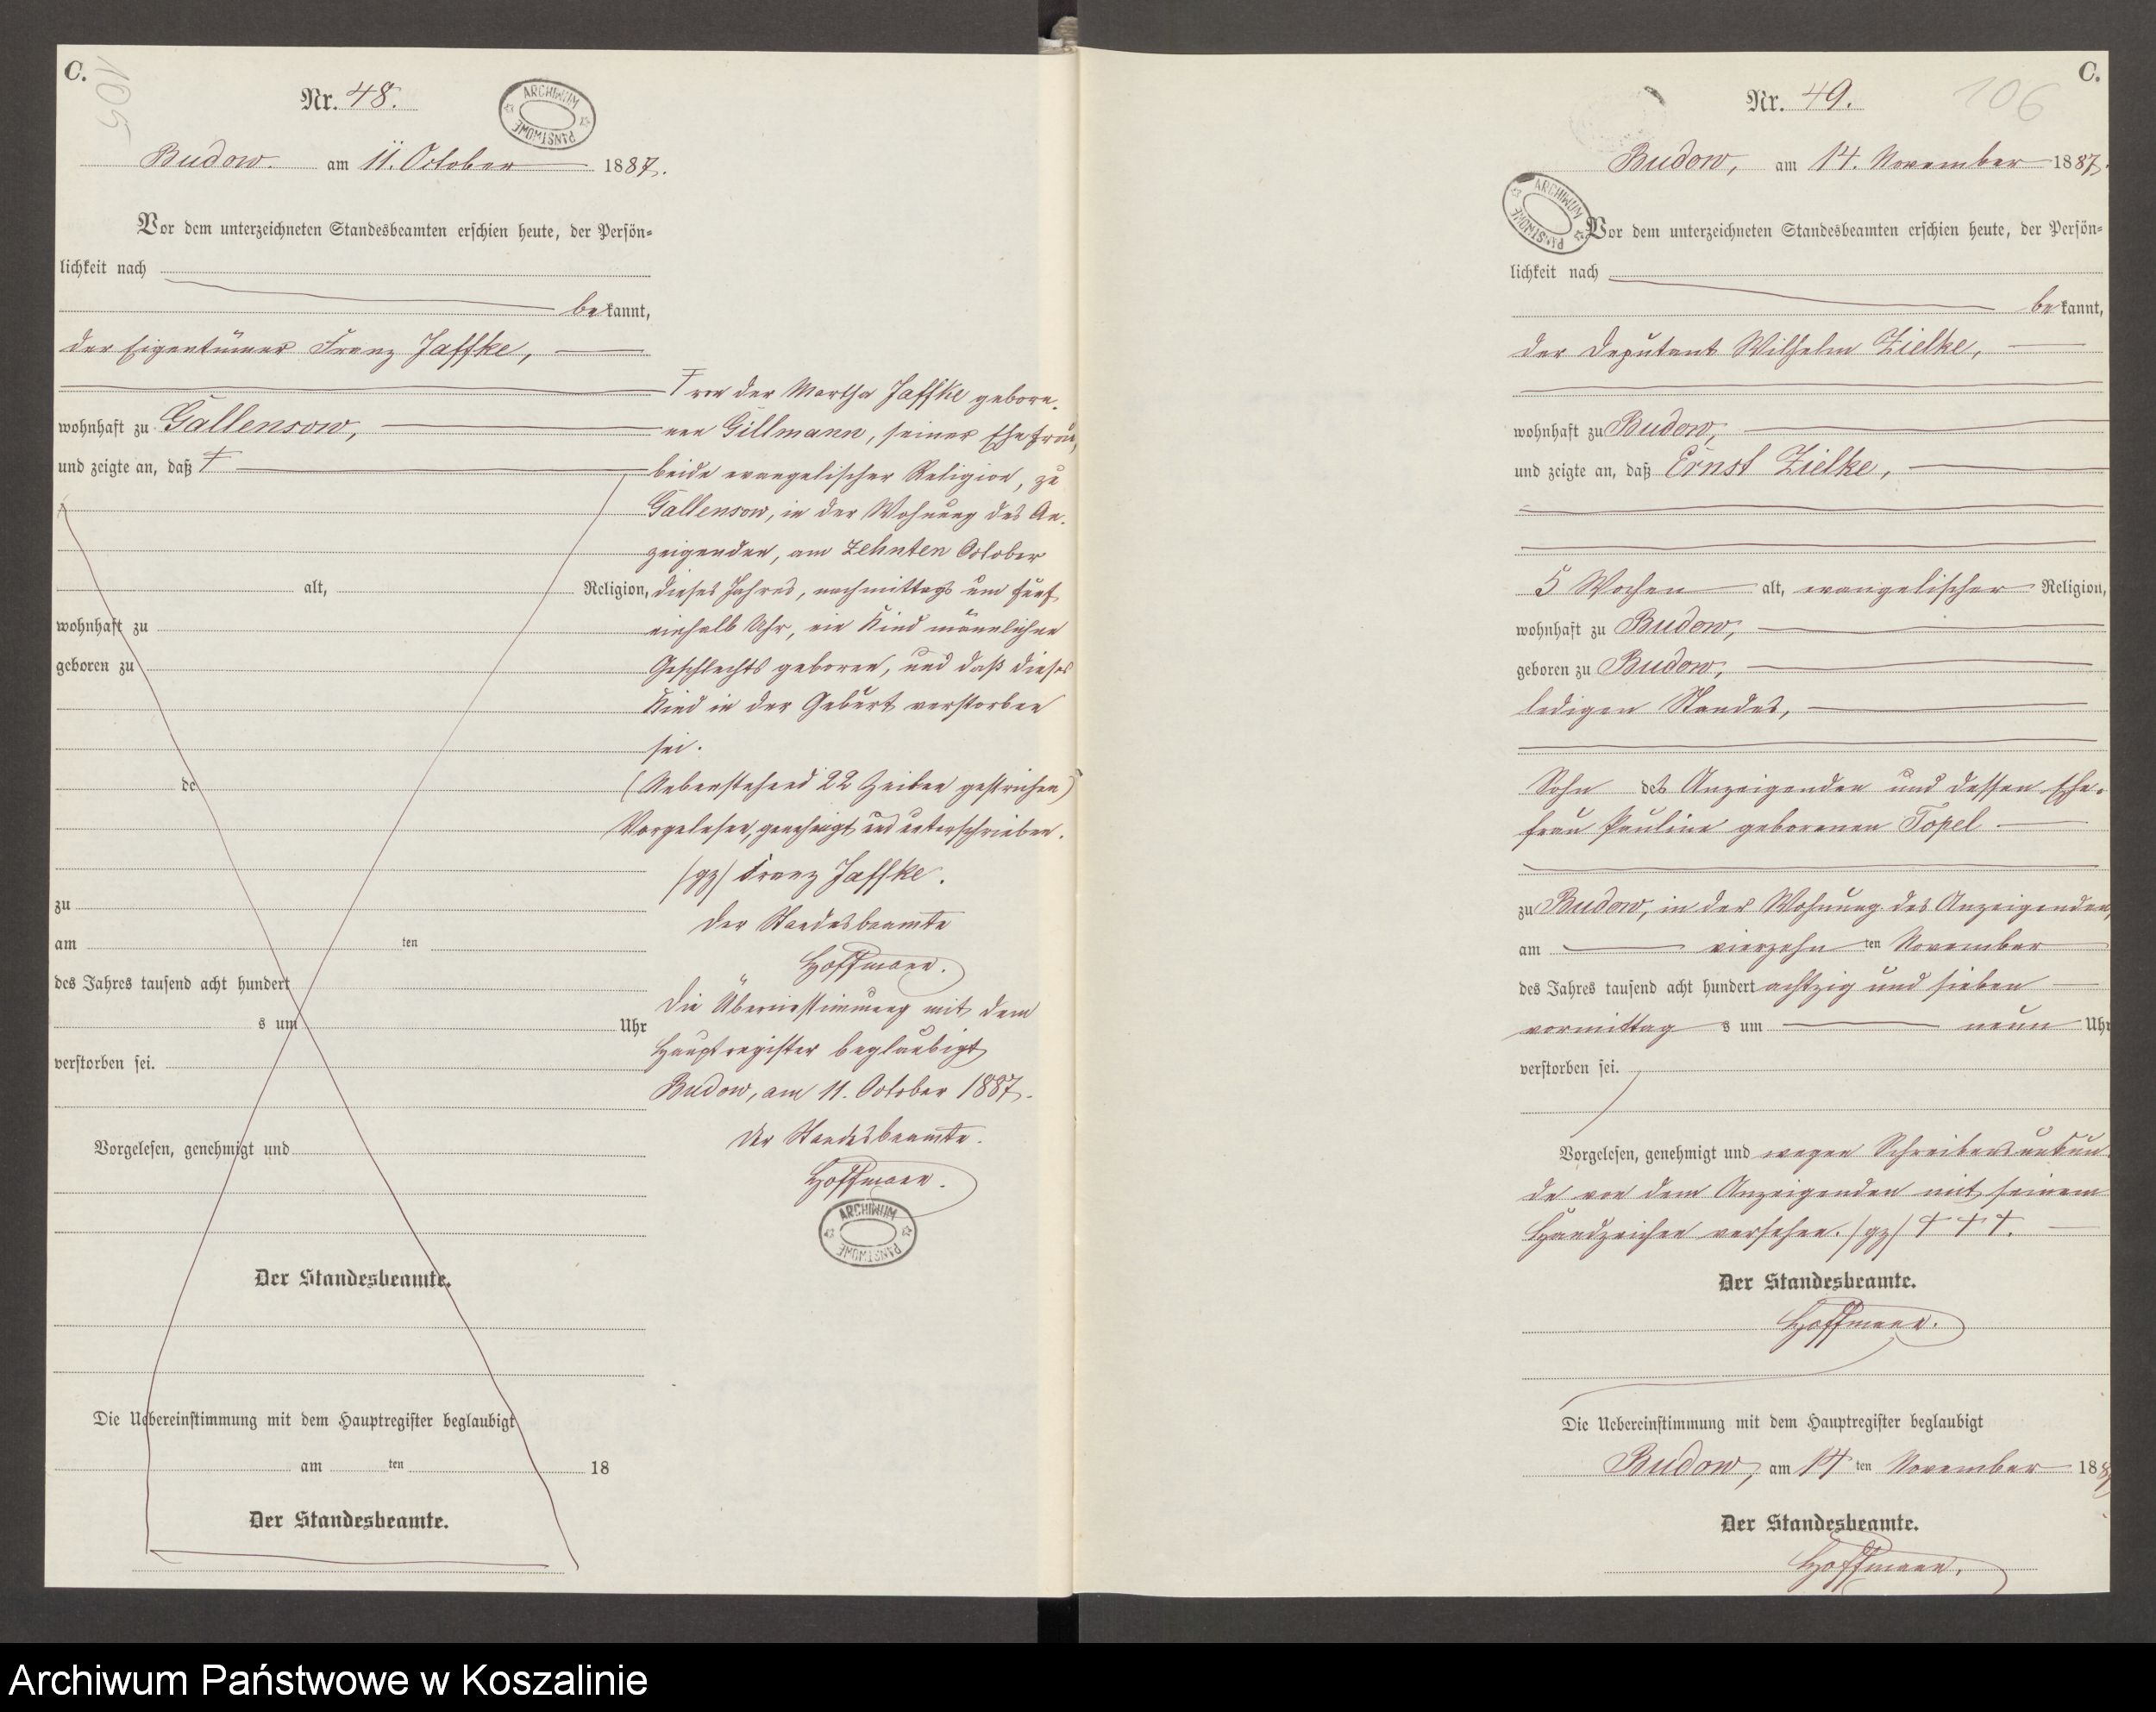 C.
105
Nr. 48.
ARCHIWUM PAŃSTWOWE
Budow. am 11. October 1887.
Vor dem unterzeichneten Standesbeamten erschien heute, der Persön-
lichkeit nach
bekannt,
der Eigentümer Franz Jaffke,
wohnhaft zu Gallensow,
und zeigte an, daß Ŧ
alt, Religion,
wohnhaft zu
geboren zu
de
zu
am ten
des Jahres tausend acht hundert
s um Uhr
verstorben sei.
Vorgelesen, genehmigt und
Der Standesbeamte.
Die Uebereinstimmung mit dem Hauptregister beglaubigt
am ten 18
Der Standesbeamte.
Ŧ von der Martha Jaffke gebore-
nen Gillmann, seiner Ehefrau,
beide evangelischer Religion, zu
Gallensow, in der Wohnung des An-
zeigenden, am zehnten October
dieses Jahres, nachmittags um fünf
einhalb Uhr, ein Kind männlichen
Geschlechts geboren, und daß dieses
Kind in der Geburt verstorben
sei.
(Nebenstehend 22 Zeilen gestrichen)
Vorgelesen, genehmigt und unterschrieben.
/gz/ Franz Jaffke.
Der Standesbeamte
Hoffmann.
Die Übereinstimmung mit dem
Hauptregister beglaubigt
Budow, am 11. October 1887.
Der Standesbeamte.
Hoffmann.
ARCHIWUM PAŃSTWOWE
C.
106
Nr. 49.
Budow, am 14. November 1887.
ARCHIWUM PAŃSTWOWE
Vor dem unterzeichneten Standesbeamten erschien heute, der Persön-
lichkeit nach
bekannt,
der Deputant Wilhelm Zielke,
wohnhaft zu Budow,
und zeigte an, daß Ernst Zielke,
5 Wochen alt, evangelischer Religion,
wohnhaft zu Budow,
geboren zu Budow,
ledigen Standes,
Sohn des Anzeigenden und dessen Ehe-
frau Pauline geborenen Topel
zu Budow, in der Wohnung des Anzeigenden,
am vierzehn ten November
des Jahres tausend acht hundert achtzig und sieben
vormittag s um neun Uhr
verstorben sei.
Vorgelesen, genehmigt und wegen Schreibensunkun
de von dem Anzeigenden mit seinem
Handzeichen versehen. /gz/ + + +.
Der Standesbeamte.
Hoffmann.
Die Uebereinstimmung mit dem Hauptregister beglaubigt
Budow, am 14 ten November 188
Der Standesbeamte.
Hoffmann.
Archiwum Państwowe w Koszalinie